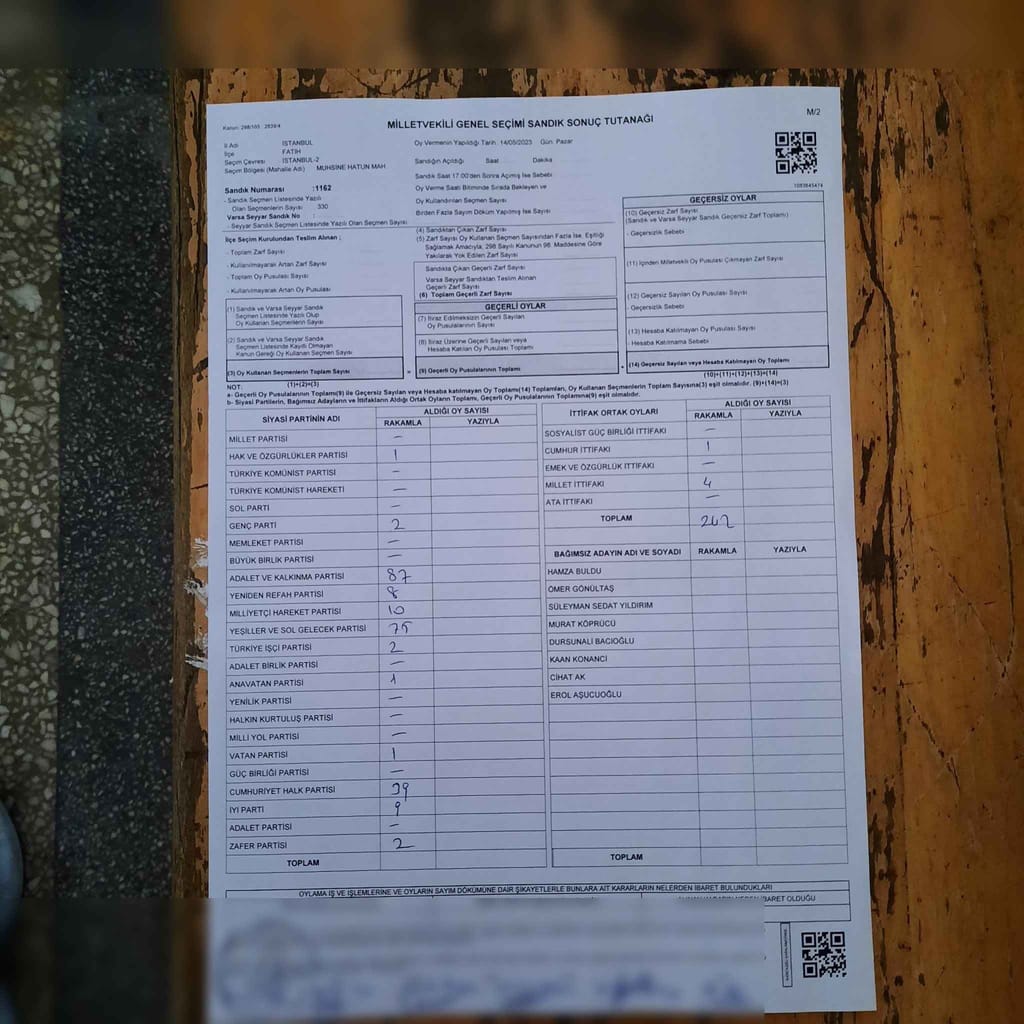 M/2
Kanun: 298/105 : 2839/4
MİLLETVEKİLİ GENEL SEÇİMİ SANDIK SONUÇ TUTANAĞI
İl Adı İSTANBUL
İlçe FATİH
Seçim Çevresi İSTANBUL-2
Seçim Bölgesi (Mahalle Adı) MUHSİNE HATUN MAH
Sandık Numarası :1162
- Sandık Seçmen Listesinde Yazılı
Olan Seçmenlerin Sayısı 330
Varsa Seyyar Sandık No :
- Seyyar Sandık Seçmen Listesinde Yazılı Olan Seçmen Sayısı
Oy Vermenin Yapıldığı Tarih. 14/05/2023 Gün. Pazar
Sandığın Açıldığı Saat Dakika
Sandık Saat 17.00'den Sonra Açılmış İse Sebebi
Oy Verme Saati Bitiminde Sırada Bekleyen ve
Oy Kullandırılan Seçmen Sayısı
Birden Fazla Sayım Döküm Yapılmış İse Sayısı
1083845474
İlçe Seçim Kurulundan Teslim Alınan :
- Toplam Zarf Sayısı
- Kullanılmayarak Artan Zarf Sayısı
- Toplam Oy Pusulası Sayısı
- Kullanılmayarak Artan Oy Pusulası
(1) Sandık ve Varsa Seyyar Sandık
Seçmen Listesinde Yazılı Olup
Oy Kullanan Seçmenlerin Sayısı
(2) Sandık ve Varsa Seyyar Sandık
Seçmen Listesinde Kayıtlı Olmayan
Kanun Gereği Oy Kullanan Seçmen Sayısı
(3) Oy Kullanan Seçmenlerin Toplam Sayısı
(1)+(2)=(3)
(4) Sandıktan Çıkan Zarf Sayısı
(5) Zarf Sayısı Oy Kullanan Seçmen Sayısından Fazla İse, Eşitliği
Sağlamak Amacıyla, 298 Sayılı Kanunun 98. Maddesine Göre
Yakılarak Yok Edilen Zarf Sayısı
Sandıkta Çıkan Geçerli Zarf Sayısı
Varsa Seyyar Sandıktan Teslim Alınan
Geçerli Zarf Sayısı
(6) Toplam Geçerli Zarf Sayısı
GEÇERLİ OYLAR
(7) İtiraz Edilmeksizin Geçerli Sayılan
Oy Pusulalarının Sayısı
(8) İtiraz Üzerine Geçerli Sayılan veya
Hesaba Katılan Oy Pusulası Toplamı
= (9) Geçerli Oy Pusulalarının Toplamı
GEÇERSİZ OYLAR
(10) Geçersiz Zarf Sayısı
(Sandık ve Varsa Seyyar Sandık Geçersiz Zarf Toplamı)
- Geçersizlik Sebebi
(11) İçinden Milletvekili Oy Pusulası Çıkmayan Zarf Sayısı
(12) Geçersiz Sayılan Oy Pusulası Sayısı
- Geçersizlik Sebebi
(13) Hesaba Katılmayan Oy Pusulası Sayısı
- Hesaba Katılmama Sebebi
+ (14) Geçersiz Sayılan veya Hesaba Katılmayan Oy Toplamı
(10)+(11)+(12)+(13)=(14)
NOT:
a- Geçerli Oy Pusulalarının Toplamı(9) ile Geçersiz Sayılan veya Hesaba katılmayan Oy Toplamı(14) Toplamları, Oy Kullanan Seçmenlerin Toplam Sayısına(3) eşit olmalıdır. (9)+(14)=(3)
b- Siyasi Partilerin, Bağımsız Adayların ve İttifakların Aldığı Ortak Oyların Toplamı, Geçerli Oy Pusulalarının Toplamına(9) eşit olmalıdır.
SİYASİ PARTİNİN ADI ALDIĞI OY SAYISI
RAKAMLA YAZIYLA
MİLLET PARTİSİ —
HAK VE ÖZGÜRLÜKLER PARTİSİ 1
TÜRKİYE KOMÜNİST PARTİSİ —
TÜRKİYE KOMÜNİST HAREKETİ —
SOL PARTİ —
GENÇ PARTİ 2
MEMLEKET PARTİSİ —
BÜYÜK BİRLİK PARTİSİ —
ADALET VE KALKINMA PARTİSİ 87
YENİDEN REFAH PARTİSİ 8
MİLLİYETÇİ HAREKET PARTİSİ 10
YEŞİLLER VE SOL GELECEK PARTİSİ 75
TÜRKİYE İŞÇİ PARTİSİ 2
ADALET BİRLİK PARTİSİ —
ANAVATAN PARTİSİ 1
YENİLİK PARTİSİ —
HALKIN KURTULUŞ PARTİSİ —
MİLLİ YOL PARTİSİ —
VATAN PARTİSİ 1
GÜÇ BİRLİĞİ PARTİSİ —
CUMHURİYET HALK PARTİSİ 39
İYİ PARTİ 9
ADALET PARTİSİ —
ZAFER PARTİSİ 2
TOPLAM
İTTİFAK ORTAK OYLARI ALDIĞI OY SAYISI
RAKAMLA YAZIYLA
SOSYALİST GÜÇ BİRLİĞİ İTTİFAKI —
CUMHUR İTTİFAKI 1
EMEK VE ÖZGÜRLÜK İTTİFAKI —
MİLLET İTTİFAKI 4
ATA İTTİFAKI —
TOPLAM 242
BAĞIMSIZ ADAYIN ADI VE SOYADI RAKAMLA YAZIYLA
HAMZA BULDU
ÖMER GÖNÜLTAŞ
SÜLEYMAN SEDAT YILDIRIM
MURAT KÖPRÜCÜ
DURSUNALİ BACIOĞLU
KAAN KONANCI
CİHAT AK
EROL AŞUCUOĞLU
TOPLAM
OYLAMA İŞ VE İŞLEMLERİNE VE OYLARIN SAYIM DÖKÜMÜNE DAİR ŞİKAYETLERLE BUNLARA AİT KARARLARIN NELERDEN İBARET BULUNDUKLARI
İBARET OLDUĞU